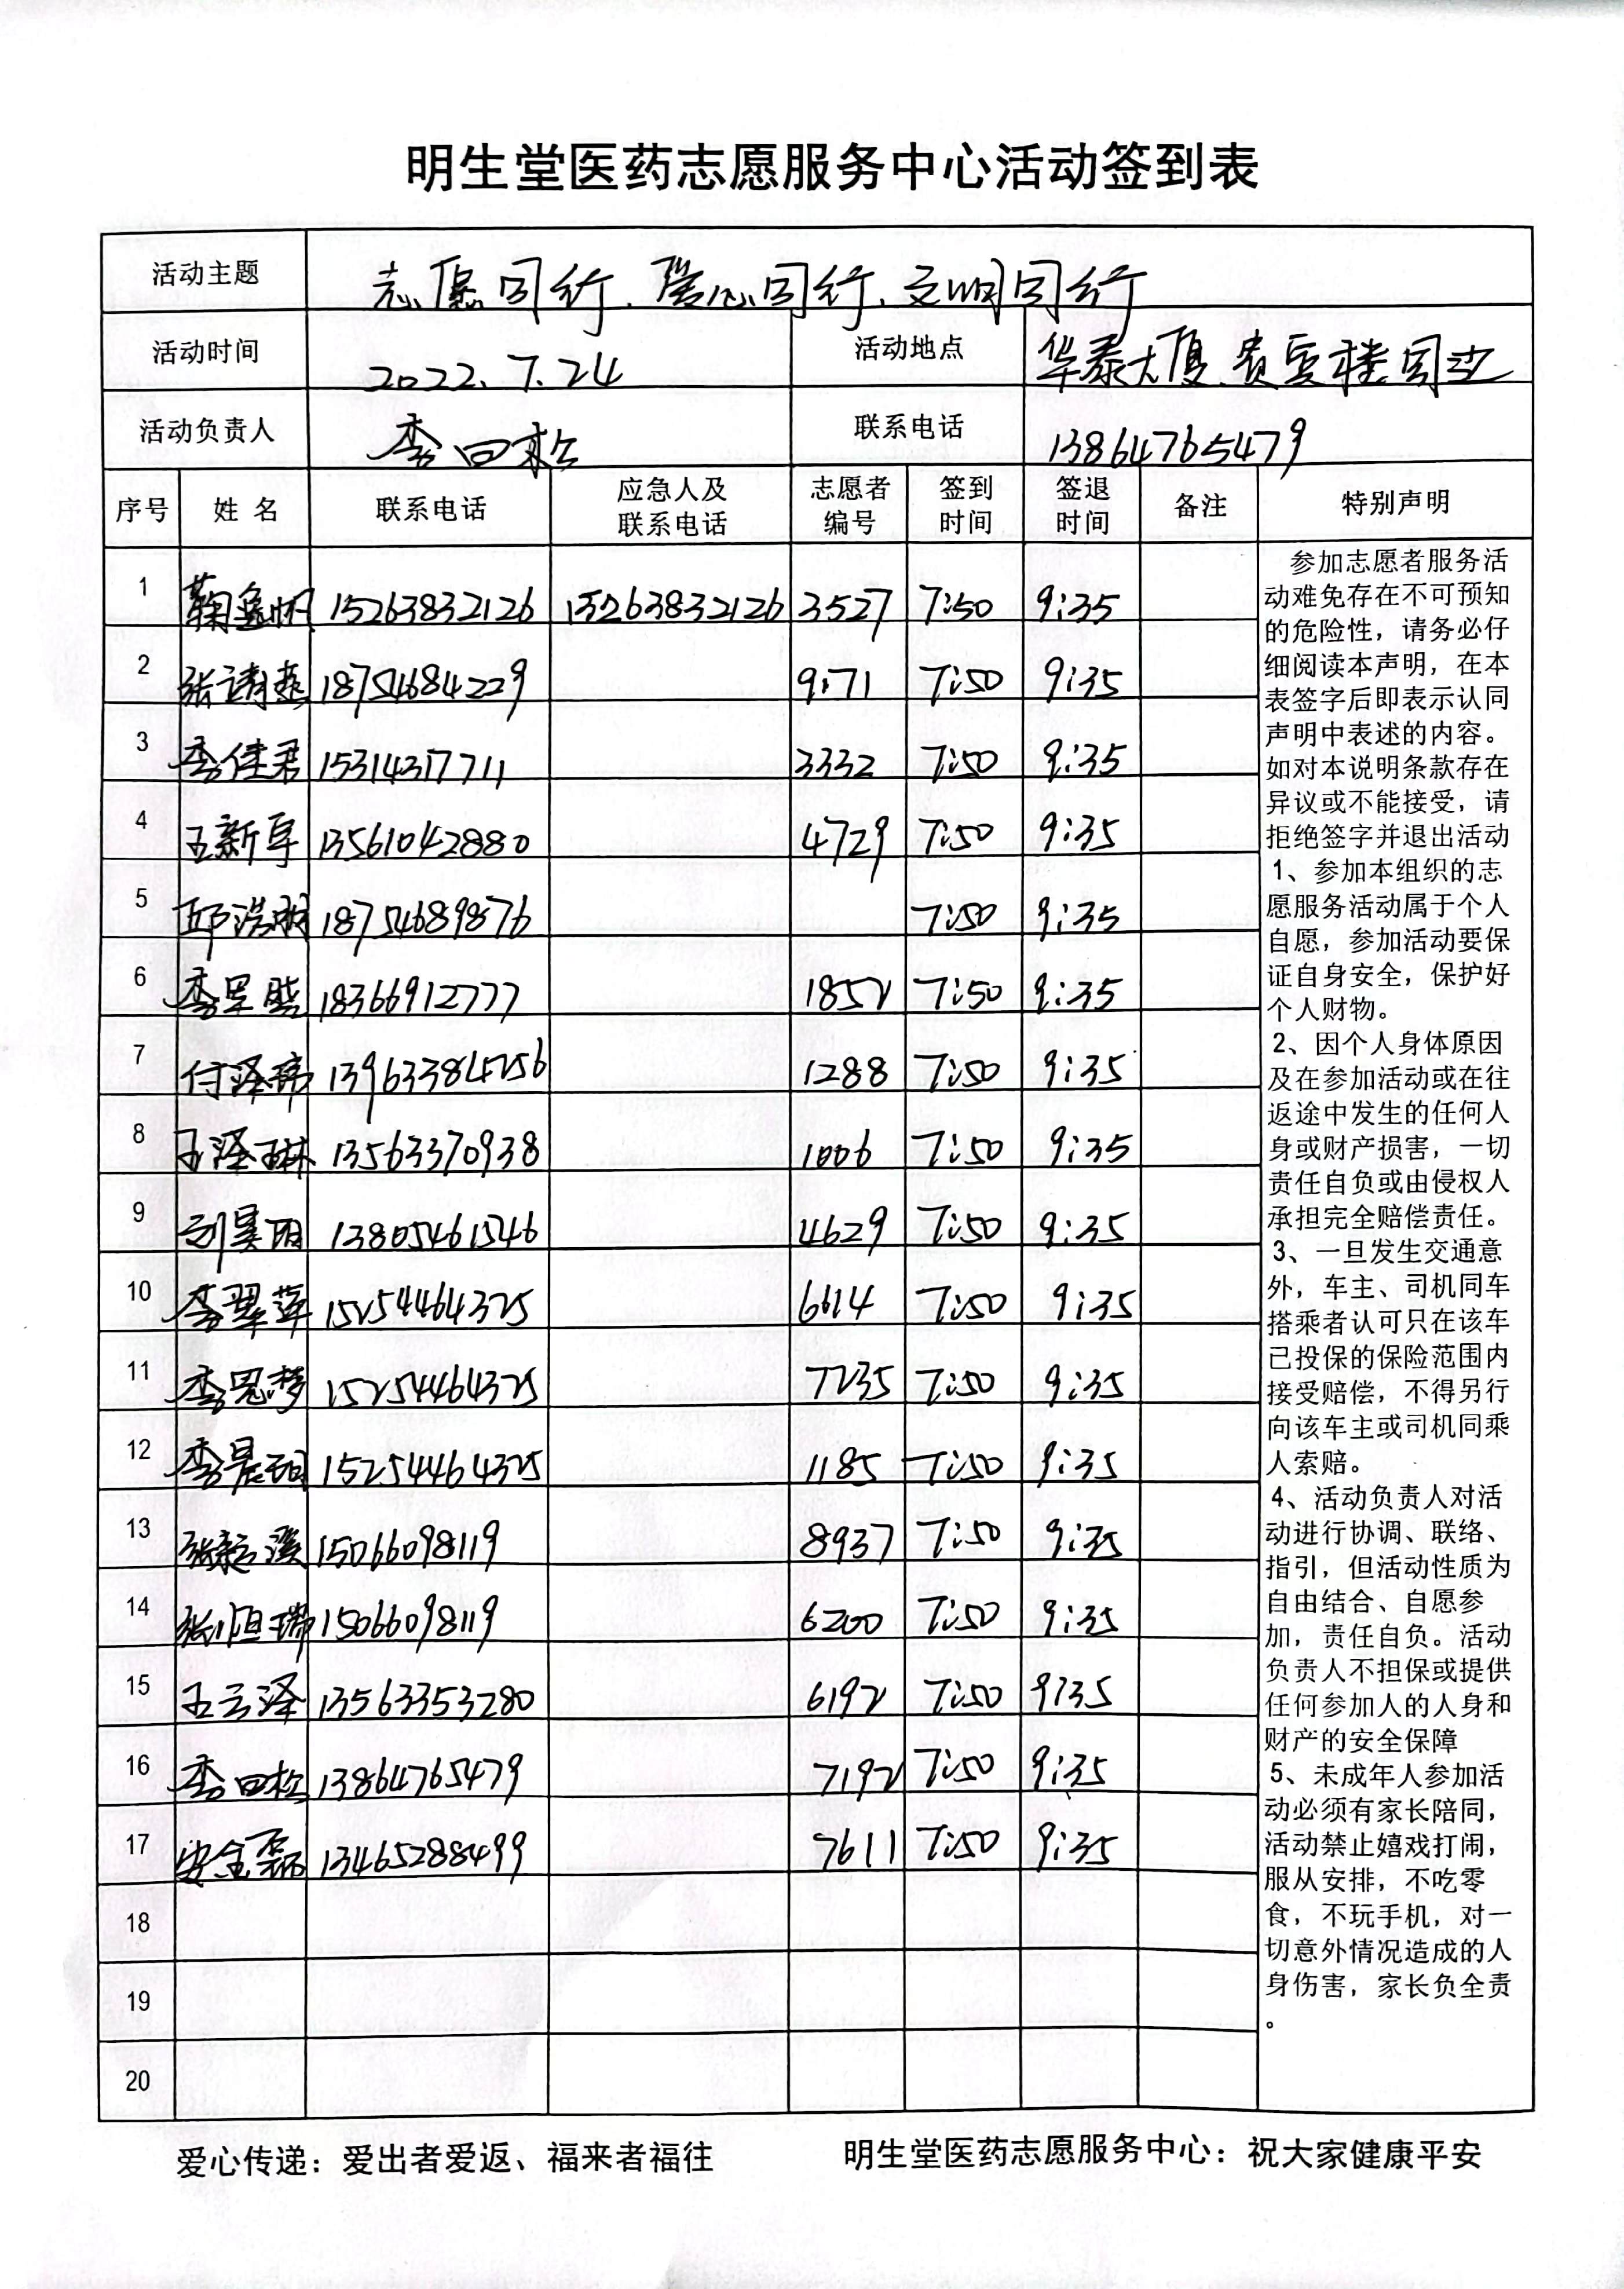 明生堂医药志愿服务中心活动签到表
活动主题 志愿同行、爱心同行、文明同行
活动时间 2022.7.24 活动地点 华泰大厦、贵宾楼周边
活动负责人 李曰松 联系电话 13864765479
序号 姓名 联系电话 应急人及联系电话 志愿者编号 签到时间 签退时间 备注 特别声明
1 15263832126 15263832126 3527 7:50 9:35
2 18754684229 9171 7:50 9:35
3 李佳君 15314317711 3332 7:50 9:35
4 王新 13561042880 4729 7:50 9:35
5 邱浩 18754689876 7:50 9:35
6 李 18366912777 1852 7:50 9:35
7 付泽 13963384256 1288 7:50 9:35
8 王泽琳 13563370938 1006 7:50 9:35
9 刘昊 13805461546 4629 7:50 9:35
10 李翠萍 15254464325 6614 7:50 9:35
11 李思梦 15254464325 7235 7:50 9:35
12 李晨 15254464325 1185 7:50 9:35
13 张 溪 15066098119 8937 7:50 9:35
14 张恒瑞 15066098119 6200 7:50 9:35
15 王云泽 13563353280 6192 7:50 9:35
16 李曰松 13864765479 7192 7:50 9:35
17 安金磊 13465288499 7611 7:50 9:35
18
19
20
参加志愿者服务活
动难免存在不可预知
的危险性，请务必仔
细阅读本声明，在本
表签字后即表示认同
声明中表述的内容。
如对本说明条款存在
异议或不能接受，请
拒绝签字并退出活动
1、参加本组织的志
愿服务活动属于个人
自愿，参加活动要保
证自身安全，保护好
个人财物。
2、因个人身体原因
及在参加活动或在往
返途中发生的任何人
身或财产损害，一切
责任自负或由侵权人
承担完全赔偿责任。
3、一旦发生交通意
外，车主、司机同车
搭乘者认可只在该车
已投保的保险范围内
接受赔偿，不得另行
向该车主或司机同乘
人索赔。
4、活动负责人对活
动进行协调、联络、
指引，但活动性质为
自由结合、自愿参
加，责任自负。活动
负责人不担保或提供
任何参加人的人身和
财产的安全保障
5、未成年人参加活
动必须有家长陪同，
活动禁止嬉戏打闹，
服从安排，不吃零
食，不玩手机，对一
切意外情况造成的人
身伤害，家长负全责
。
爱心传递：爱出者爱返、福来者福往 明生堂医药志愿服务中心：祝大家健康平安